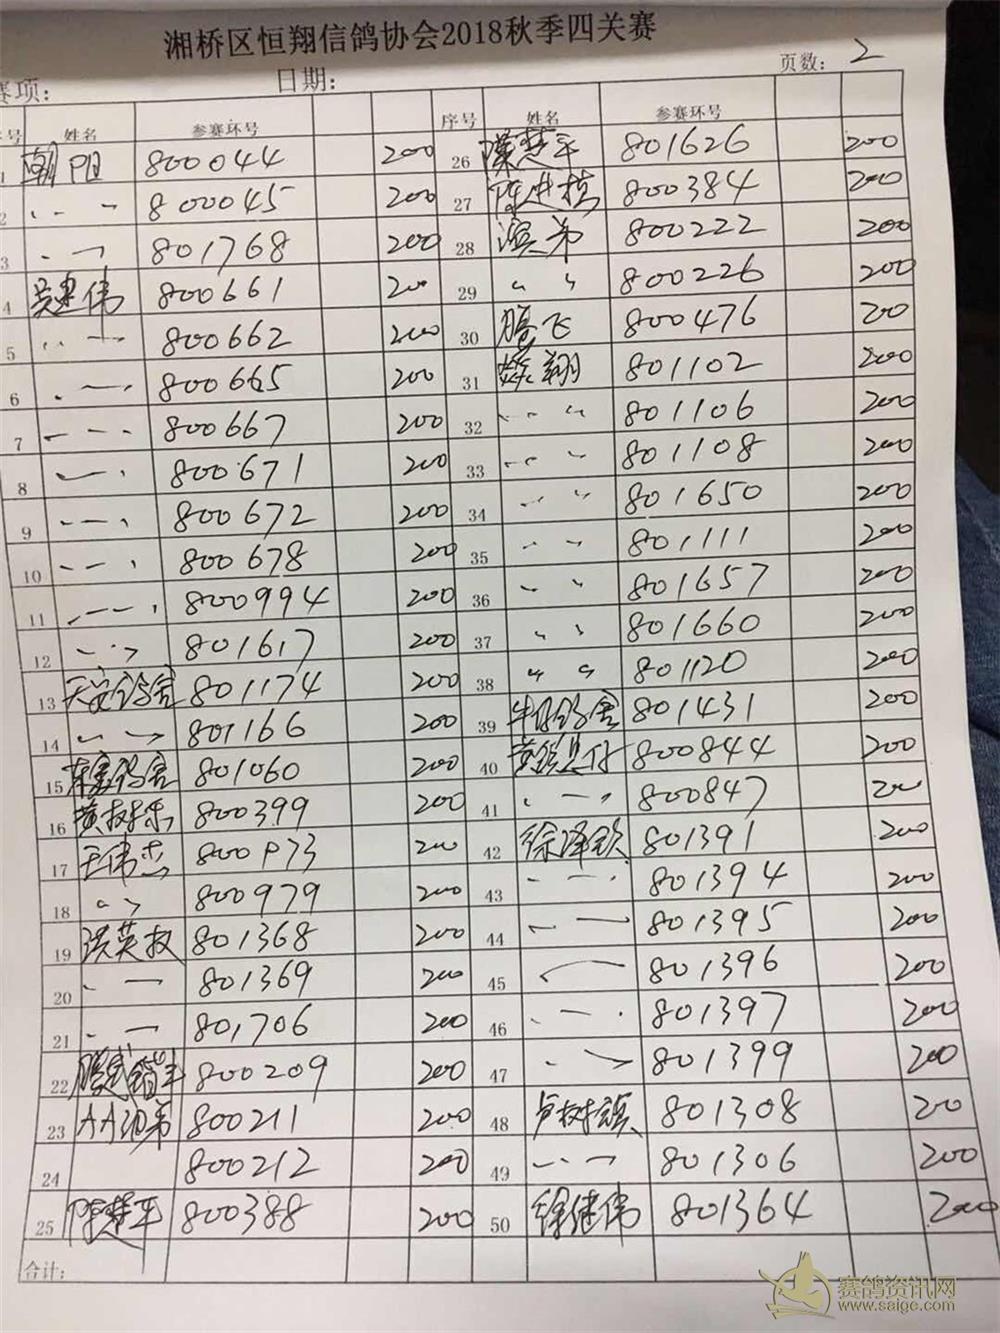 湘桥区恒翔信鸽协会2018秋季四关赛
赛项： 日期： 页数： 2
序号 姓名 参赛环号 序号 姓名 参赛环号
1 潮阳 800044 200 26 陈楚平 801626 200
2 〃 800045 200 27 陈进枝 800384 200
3 〃 801768 200 28 滨弟 800222 200
4 吴建伟 800661 200 29 〃 800226 200
5 〃 800662 200 30 鹏飞 800476 200
6 〃 800665 200 31 翔 801102 200
7 〃 800667 200 32 〃 801106 200
8 〃 800671 200 33 〃 801108 200
9 〃 800672 200 34 〃 801650 200
10 〃 800678 200 35 〃 801111 200
11 〃 800994 200 36 〃 801657 200
12 〃 801617 200 37 〃 801660 200
13 天安鸽舍 801174 200 38 〃 801120 200
14 〃 801166 200 39 牛仔鸽舍 801431 200
15 鸽舍 801060 200 40 黄 800844 200
16 黄树乐 800399 200 41 〃 800847 200
17 王伟杰 800973 200 42 徐泽钦 801391 200
18 〃 800979 200 43 〃 801394 200
19 洪英权 801368 200 44 〃 801395 200
20 〃 801369 200 45 〃 801396 200
21 〃 801706 200 46 〃 801397 200
22 800209 200 47 〃 801399 200
23 AA 弟 800211 200 48 卢树 801308 200
24 800212 200 49 〃 801306 200
25 陈楚平 800388 200 50 徐继伟 801364 200
合计：
赛鸽资讯网
www.saige.com